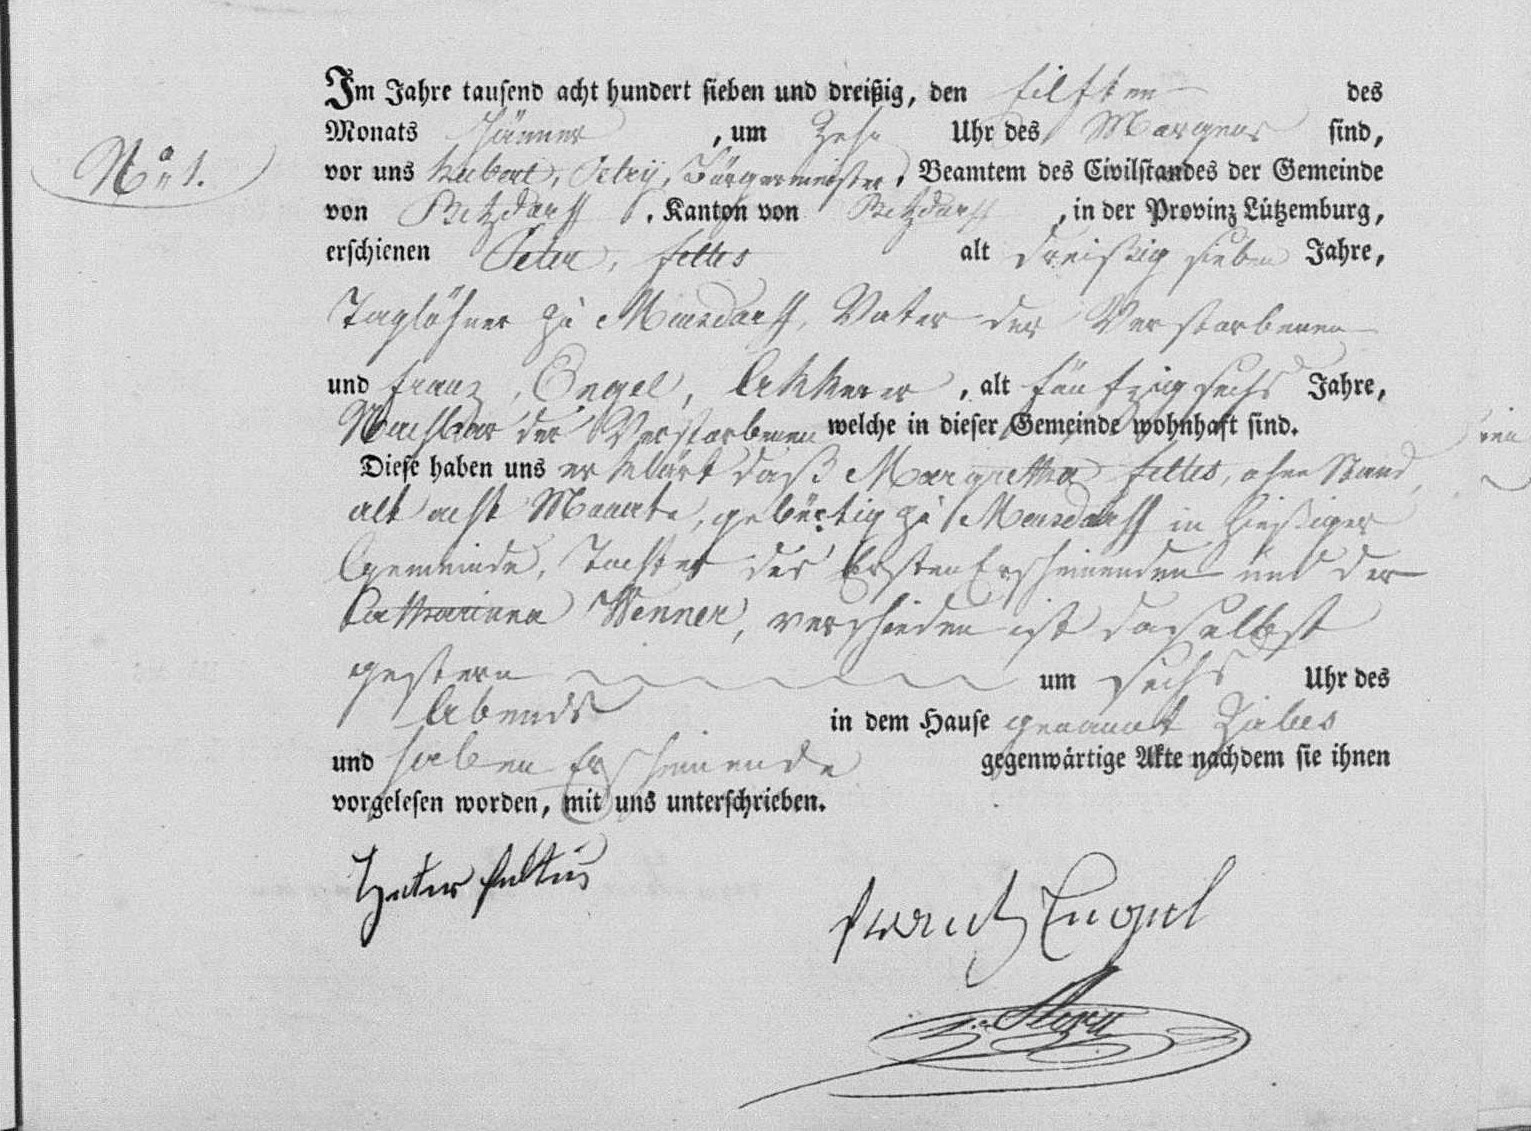 Im Jahre tausend acht hundert sieben und dreißig, den eilften des
Monats Jänner, um Zehn Uhr des Morgens sind,
No 1.
vor uns Hubert, Bürgermeister, Beamtem des Civilstandes der Gemeinde
von Betzdorff, Kanton von Betzdorff, in der Provinz Lützemburg,
erschienen Peter, Feltes alt dreißig sieben Jahre,
Taglöhner zu Mensdorff, Vater der Verstorbenen
und Franz, Engel, Akkerer, alt fünfzig sechs Jahre,
Nachbar der Verstorbenen welche in dieser Gemeinde wohnhaft sind.
Diese haben uns erklärt daß Margretha Feltes, ohne Stand,
alt acht Monate, gebürtig zu Mensdorff in hießiger
Gemeinde, Tochter des Ersten Erscheinenden und der
Catharinna Wenner, verschieden ist daselbst
gestern um sechs Uhr des
Abends in dem Hause genannt
und haben Erscheinende gegenwärtige Akte nachdem sie ihnen
vorgelesen worden, mit uns unterschrieben.
Peter Feltes
Frantz Engel